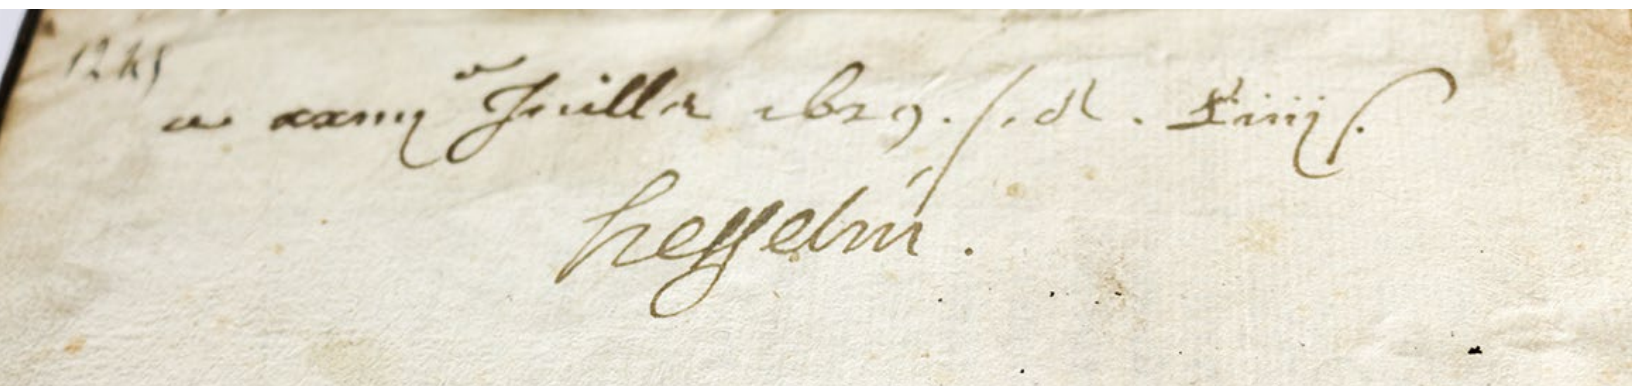 1245
xxiiij Juillet 1629. s. d. Xiiij s.
hesselin.